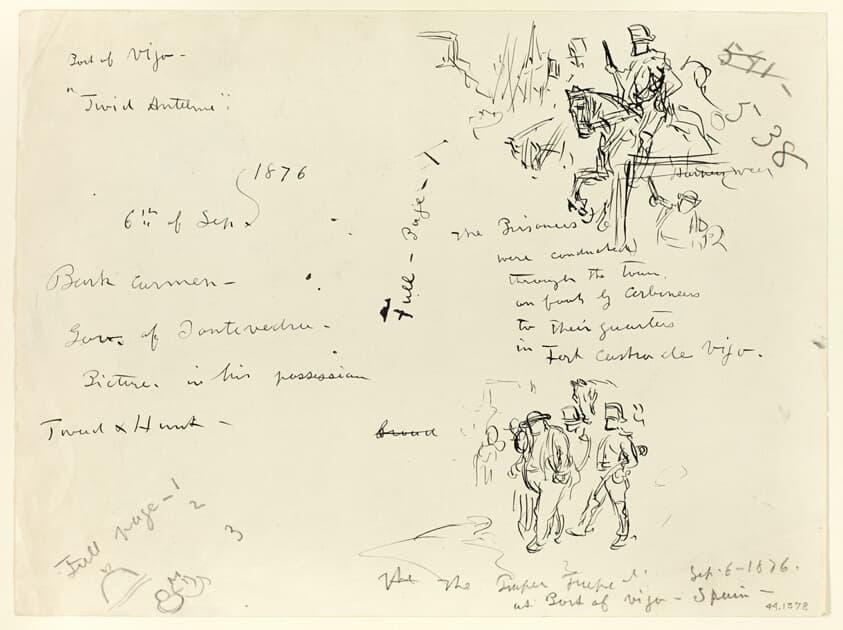 Port of Vigo -
"Twid Antelme":
1876
6th of Sep.
Bark Carmen -
Gov. of Pontevedra -
Picture. in his possession
Tweed & Hunt -
Full page - 1
2
3
Full - Page - 1
541 -
538
The Prisoners
were conducted
through the town,
on foot by Carbineers
to their quarters
in Fort Castro de Vigo.
The Sep. 6 - 1876.
at Port of Vigo - Spain -
44.1578